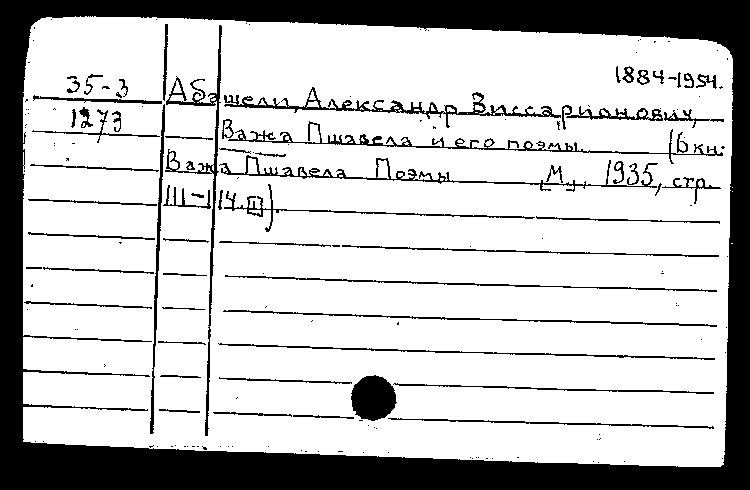 1884-1954.
35-3 Абашели, Александр Виссарионович,
1273 Важа Пшавела и его поэмы. (В кн:
Важа Пшавела Поэмы М., 1935, стр.
III-114.).